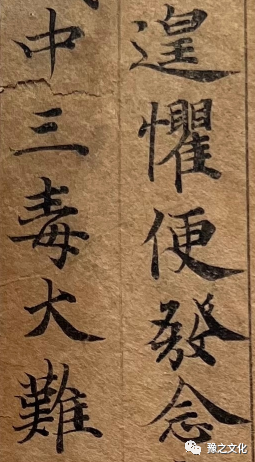 遑懼便發念
中三毒大難
豫之文化